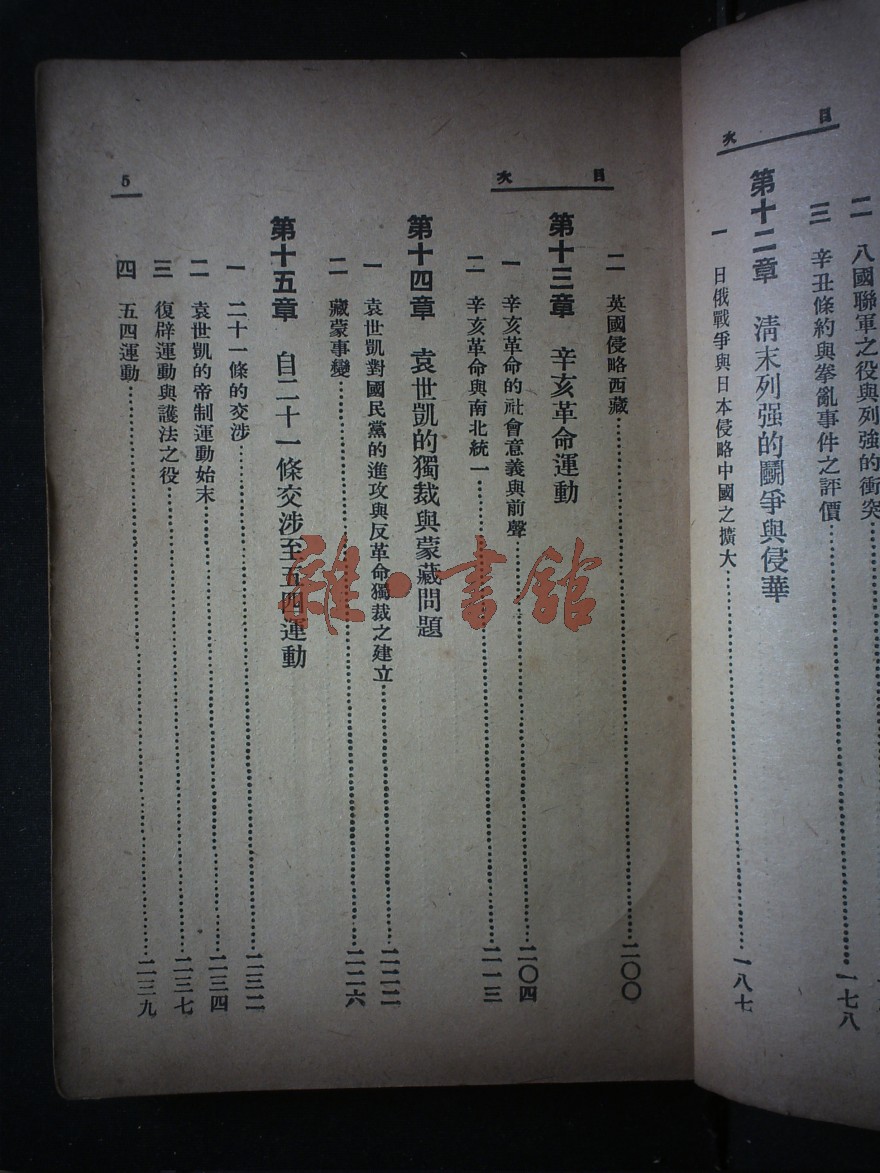 目次
二 八國聯軍之役與列強的衝突
三 辛丑條約與拳亂事件之評價……一七八
第十二章 清末列强的鬬爭與侵華
一 日俄戰爭與日本侵略中國之擴大……一八七
目次
5
二 英國侵略西藏……二〇〇
第十三章 辛亥革命運動
一 辛亥革命的社會意義與前聲……二〇四
二 辛亥革命與南北統一……二一三
第十四章 袁世凱的獨裁與蒙藏問題
一 袁世凱對國民黨的進攻與反革命獨裁之建立……二二二
二 藏蒙事變……二二六
第十五章 自二十一條交涉至五四運動
一 二十一條的交涉……二三二
二 袁世凱的帝制運動始末……二三四
三 復辟運動與護法之役……二三七
四 五四運動……二三九
雅·書館